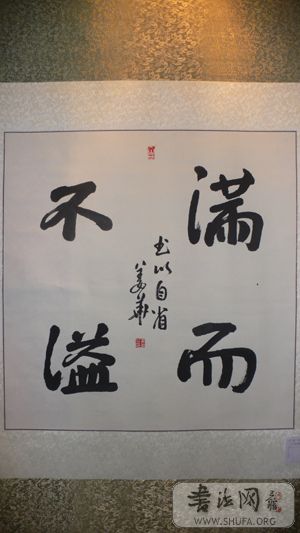 满而
不溢
书以自省
书法网
WWW.SHUFA.ORG